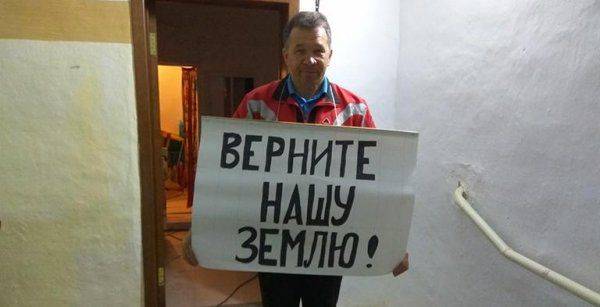 ВЕРНИТЕ
НАШУ
ЗЕМЛЮ!